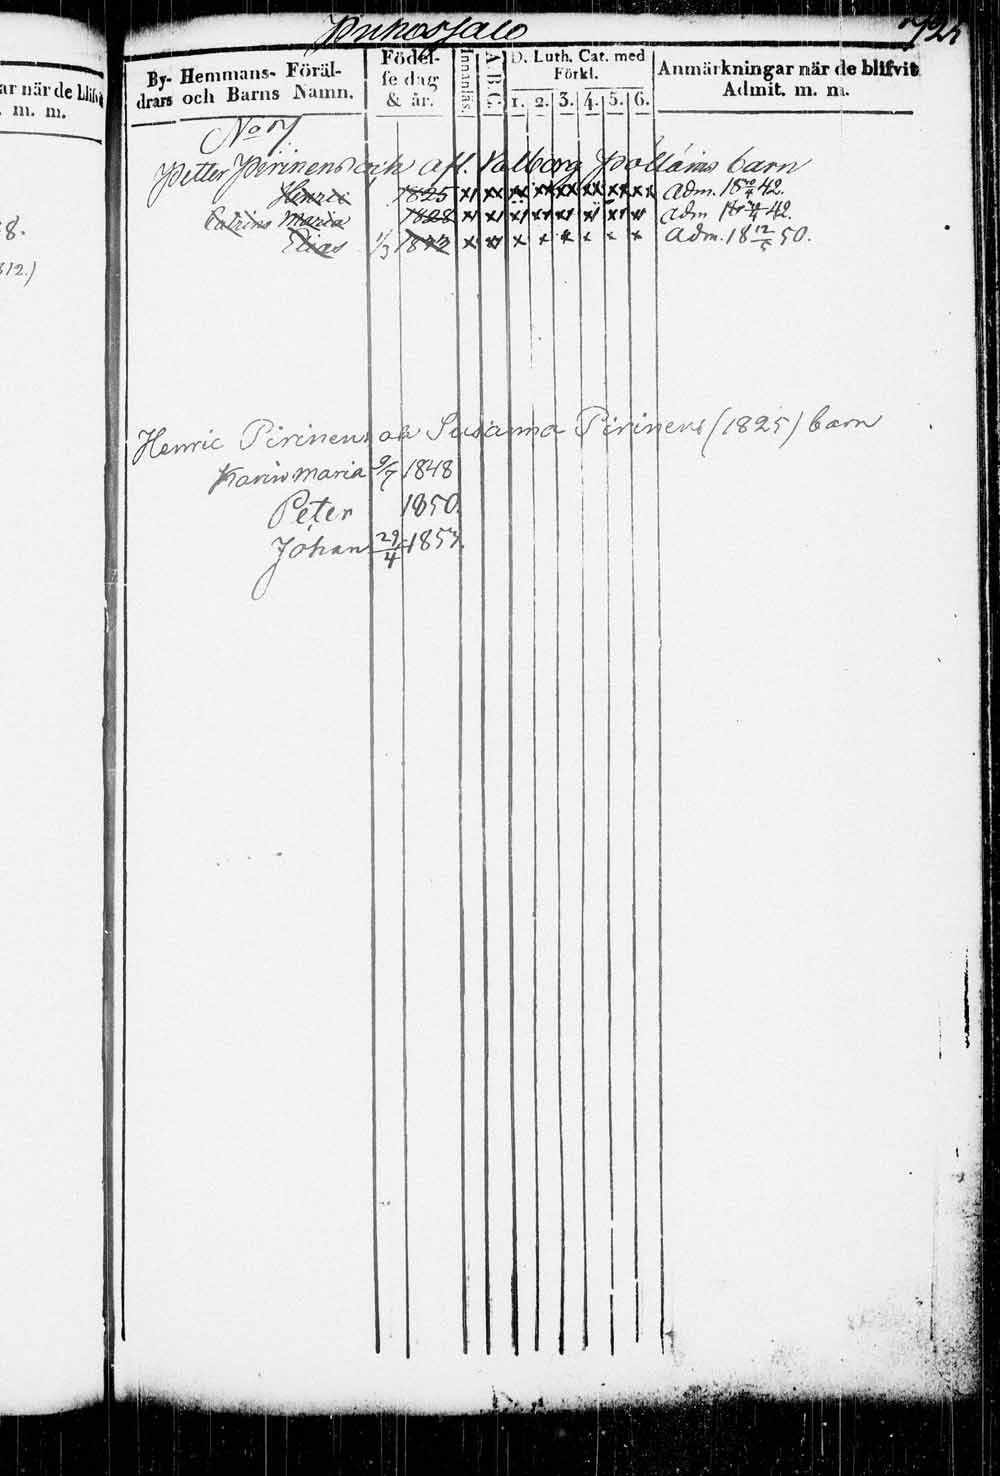 Puhossalo 725
ar när de blifvit
. m. m.
8.
812.)
By- Hemmans- Föräl-
drars och Barns Namn.
Födel-
se dag
& år.
Innanläs.
A B C
D. Luth. Cat. med
Förkl.
1. 2. 3. 4. 5. 6.
Anmärkningar när de blifvit
Admit. m. m.
No 7
Petter Pirinens och afl. Valborg barn
Henric 1825 Adm. 18 42.
Catrina Maria 1828 Adm 18 42.
Elias 1/3 1832 Adm. 18 12/5 50.
Henric Pirinens och Susanna Pirinens (1825) barn
Karin Maria 9/7 1848
Peter 1850.
Johan 29/4 1853.